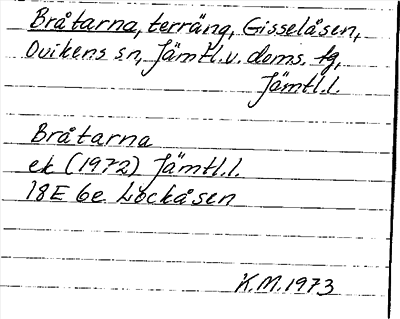 Bråtarna, terräng, Gisselåsen,
Ovikens sn, Jämtl.v. doms. tg,
Jämtl.l.
Bråtarna
ek (1972) Jämtl.l.
18E 6e Lockåsen
K.M.1973